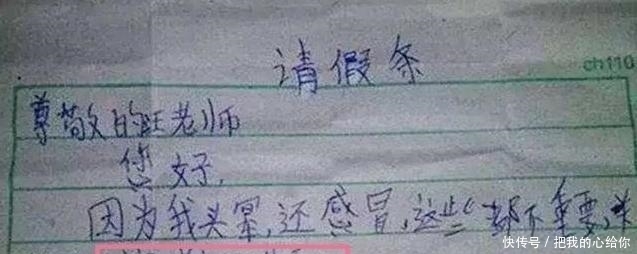 请假条
ch110
尊敬的旺老师
您好,
因为我头晕,还感冒,这些都不重要,关
快传号/把我的心给你